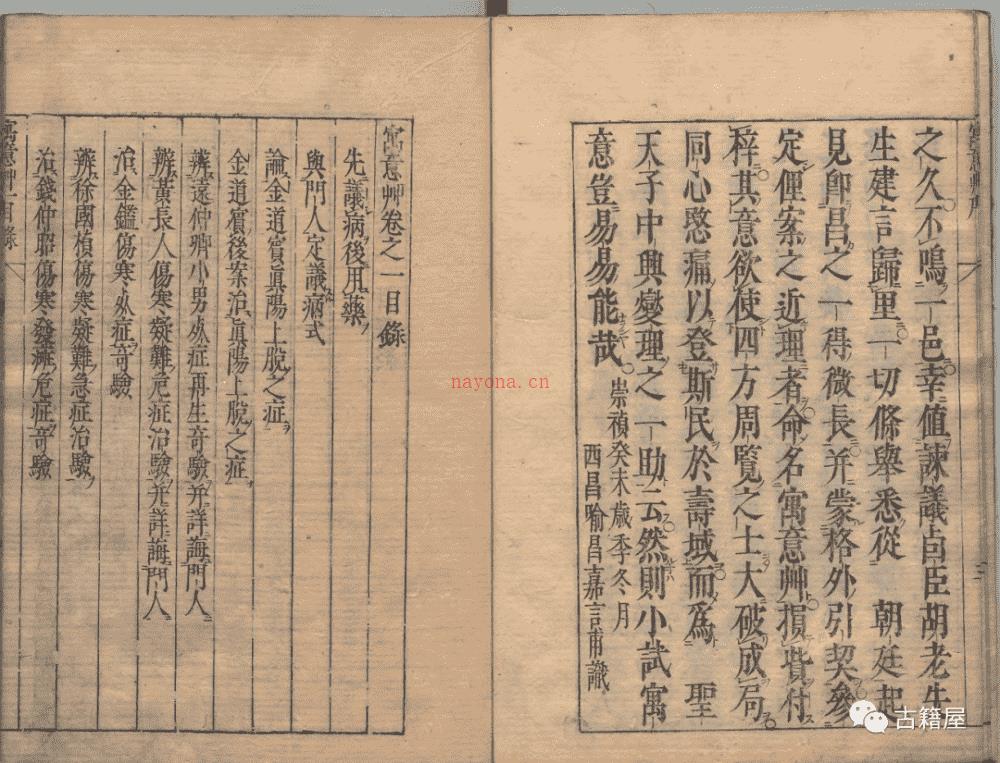 之久不鳴一邑幸值諫議卣臣胡老先
生建言歸里一切條舉悉從　朝廷起
見卽昌之一得微長并蒙格外引契參
定俚案之近理者命名寓意艸損貲付
梓其意欲使四方周覽之士大破成局
同心愍痛以登斯民於壽域而爲　聖
天子中興燮理之一助云然則小試寓
意豈易易能哉
崇禎癸未歲季冬月
西昌喻昌嘉言甫識
寓意艸卷之一目錄
先議病後用藥
與門人定議病式
論金道賓眞陽上脫之症
金道賓後案治眞陽上脫之症
辨袁仲卿小男死症再生奇驗并詳誨門人
辨黃長人傷寒疑難危症治驗并詳誨門人
治金鑑傷寒死症奇驗
辨徐國禎傷寒疑難急症治驗
治錢仲昭傷寒發癍危症奇驗
寓意艸目錄
nayona.cn
古籍屋